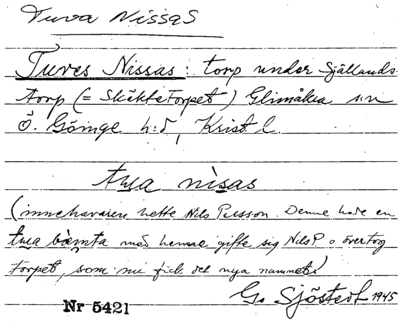 Tuva Nissas
Tuves Nissas: torp under Själlands-
torp (= Släktetorpet) Glimåkra sn
Ö. Göinge h:d, Krist l.
tua nisas
(innehavaren hette Nils Persson. Denne hade en
tua bænta med henne gifte sig Nils P o övertog
torpet, som nu fick det nya namnet)
G. Sjöstedt 1945
Nr 5421